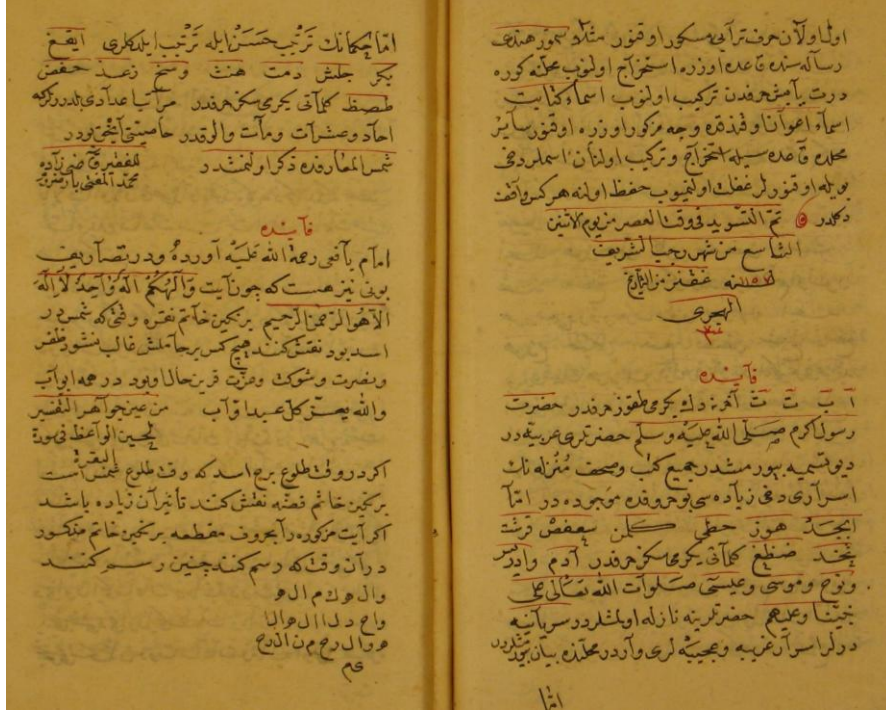 اولا اولان حرف ترابی مسکور اوقنور مثلا سموز هندی
رساله سنده قاعده اوزره استخراج اولنوب محلنه کوره
درت یا بش حرفدن ترکیب اولنوب اسماء کتابت
اسماء اعوان اوقندقده وجه مزکور اوزره اوقنور سایر
محلده قاعده سیله استخراج و ترکیب اولنان اسملر دخی
بویله اوقنور لر غفلت اولنمیوب حفظ اولنه هرکس واقف
دکلدر تم التسوید فی وقت العصر من یوم الاثنین
التاسع من شهر رجب الشریف
لسنه ١١٥٧
الهجری
فآئده
ا ب ت ث آخرنه دك یکرمی طقوز حرفدر حضرت
رسول اکرم صلی الله علیه وسلم حضرتلری عربیه در
دیو تسمیه بیورمشدر جمیع کتب وصحف منزله نك
اسراری دخی زیاده سی بو حروفده موجوده در امّا
ابجد هوز حطی کلمن سعفص قرشت
ثخذ ضظغ کلماتی یکرمی سکز حرفدر آدم وادریس
ونوح وموسی وعیسی صلوات الله تعالی علی
نبینا وعلیهم حضرتلرینه نازله اولمشلردر سریانیه
درلر اسرار غریبه وعجیبه لری واردر محلنده بیان
امّا
امّا حکمانك ترتیب حسن ایله ترتیب ایلدکلری ایقغ
بکر جلش دمت هنث وسخ زعذ حفض
طصظ کلماتی یکرمی سکز حرفدر مراتب اعدادی بلدرر که
احاد وعشرات ومآت والوفدر خاصیتی آیتی بودر
شمس المعارفده ذکر اولنمشدر للفقیر قاضی زاده
محمد المفتی
فآئده
امام یافعی رحمة الله علیه آورده ودر تصاریف
بونی نیز هست که چون آیت والهکم اله واحد لا اله
الا هو الرحمن الرحیم برنکین خاتم نقره وقتی که شمس در
اسد بود نقش کنند هیچ کس بر حاملش غالب نشود ظفر
ونصرت وشوکت وعزت قرین حال او بود در همه ابواب
والله یعز کل عبد اواب من عین جواهر التفسیر
لحسین الواعظ فی سورة
البقرة
اکر در وقت طلوع برج اسد که وقت طلوع شمس است
برنکین خاتم فضه نقش کنند تأثیر آن زیاده باشد
اکر آیت مزکوره را بحروف مقطعه برنکین خاتم مذکور
در آن وقت که رسم کنند چنین رسم کنند
و ا ل ه ك م ا ل ه و
ا ح د ل ا ا ل ه ا ل ا
ه و ا ل ر ح م ن ا ل ر ح
ی م